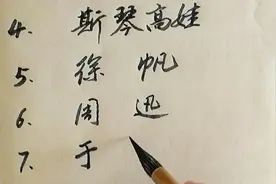 4. 斯琴高娃
5. 徐 帆
6. 周 迅
7. 于